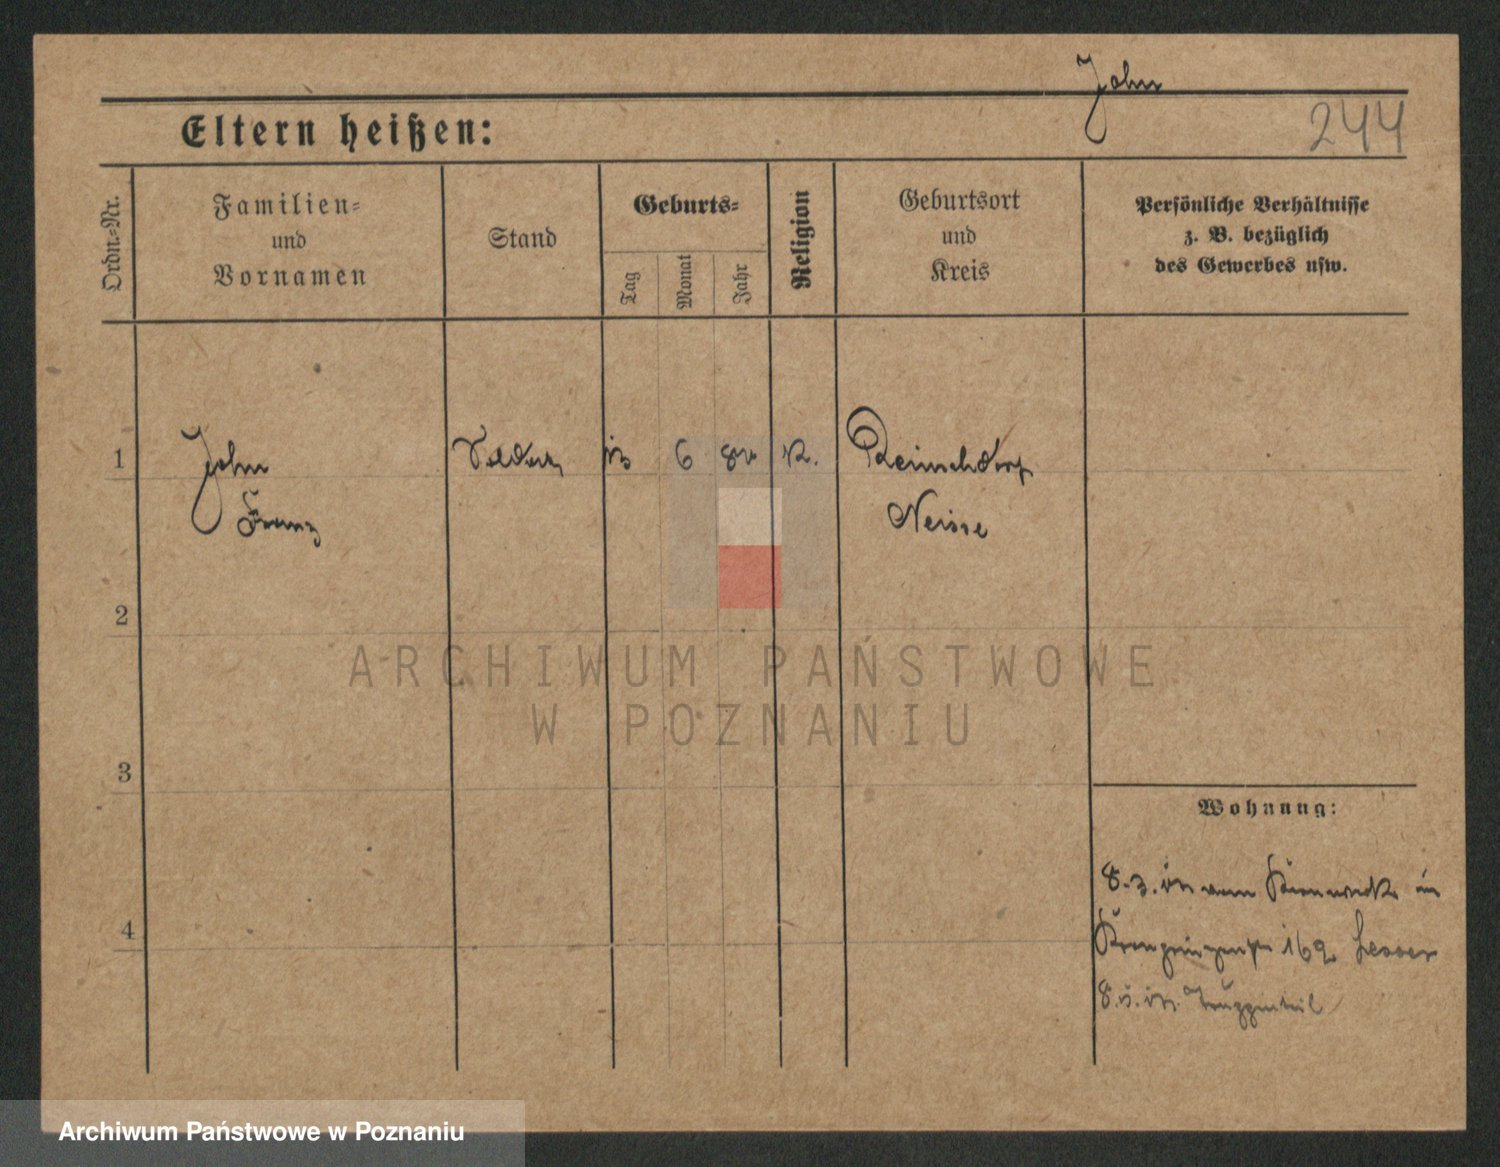 John
Eltern heißen:
244
Ordn.=Nr.
Familien=
und
Vornamen
Stand
Geburts=
Tag
Monat
Jahr
Religion
Geburtsort
und
Kreis
Persönliche Verhältnisse
z. B. bezüglich
des Gewerbes usw.
1
John
Franz
6
K.
Reinschdorf
Neisse
2
ARCHIWUM PAŃSTWOWE
W POZNANIU
3
Wohnung:
8. 3.
4
162 Lesser
8.
Archiwum Państwowe w Poznaniu